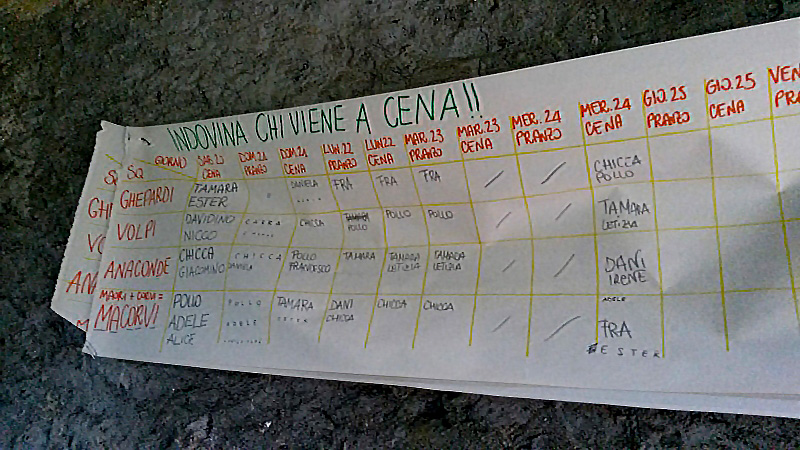 INDOVINA CHI VIENE A CENA!!
SQ GIORNO SAB.20 CENA DOM.21 PRANZO DOM.21 CENA LUN.22 PRANZO LUN22 CENA MAR.23 PRANZO MAR.23 CENA MER.24 PRANZO MER.24 CENA GIO.25 PRANZO GIO.25 CENA VEN PRA
GHEPARDI TAMARA DANIELA FRA FRA FRA / / CHICCA
ESTER POLLO
VOLPI DAVIDINO CHICCA POLLO POLLO POLLO / / TAMARA
NICCO LETIZIA
ANACONDE CHICCA CHICCA POLLO TAMARA TAMARA TAMARA / / DANI
GIACOMINO DANIELA FRANCESCO LETIZIA LETIZIA IRENE
MAORI + CORVI =
MACORVI POLLO POLLO TAMARA DANI CHICCA CHICCA / / ADELE
ADELE ADELE ESTER CHICCA FRA
ALICE ESTER